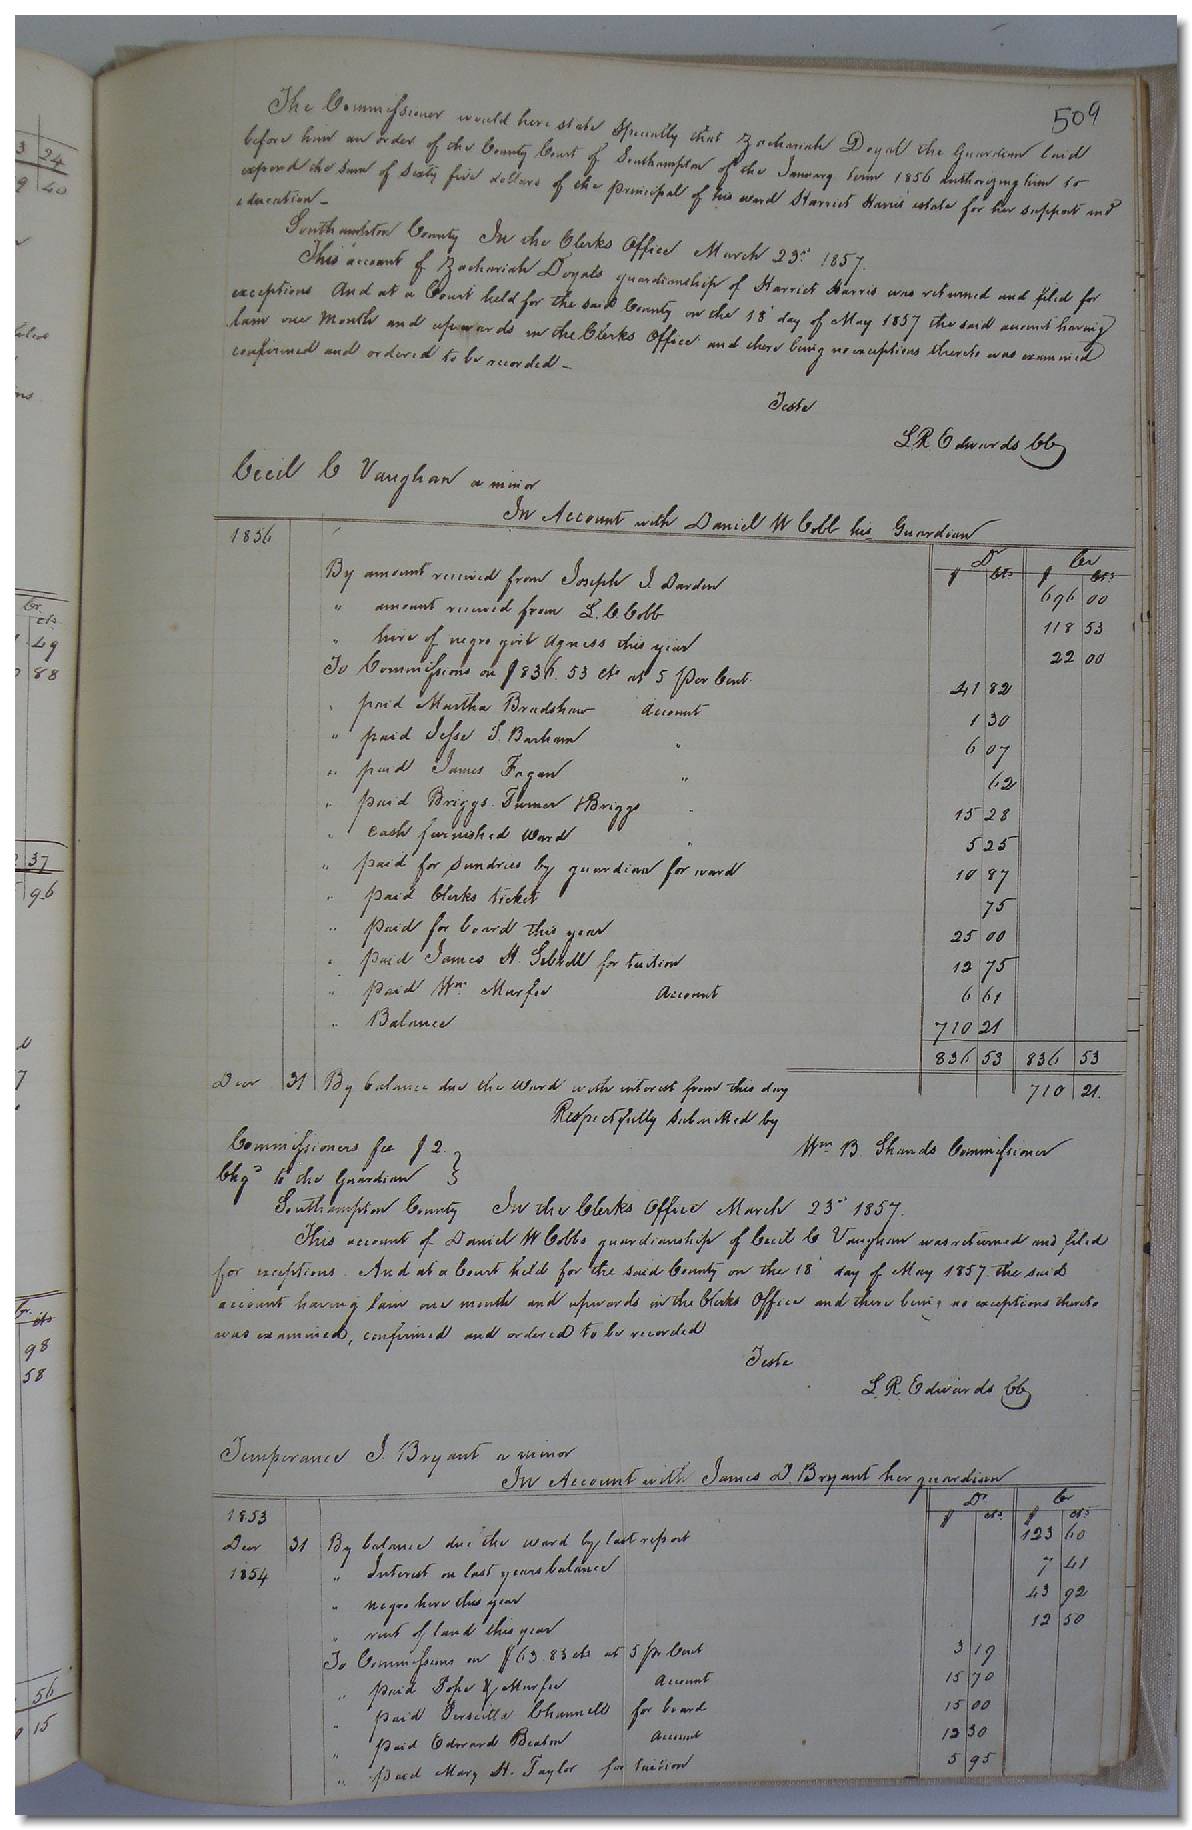 509
The Commissioner would here state Specially that Zachariah Doyal the Guardian laid
before him an order of the County Court of Southampton of the January term 1856 authorizing him to
expend the sum of sixty five dollars of the principal of his ward Harriet Harris estate for her support and
education
Southampton County In the Clerks Office March 23d 1857.
This account of Zachariah Doyals guardianship of Harriet Harris was returned and filed for
exceptions And at a Court held for the said County on the 18 day of May 1857 the said account having
lain one month and upwards in the Clerks Office and there being no exceptions thereto was examined
confirmed and ordered to be recorded
Teste
L.R. Edwards CC
Cecil C Vaughan a minor
In Account with Daniel W Cobb his Guardian
1856 Dr Cr
$ cts $ cts
By amount received from Joseph J. Darden 696 00
" amount received from L. C Cobb 118 53
" hire of negro girl Agness this year 22 00
To Commissions on $836. 53 cts at 5 per Cent 41 82
" paid Martha Bradshaw Account 1 30
" paid Jesse S. Barham " 6 07
" paid James Fagan " 62
" paid Briggs Turner & Briggs " 15 28
" cash furnished Ward " 5 25
" paid for sundries by guardian for ward 10 87
" paid Clerks ticket 75
" paid for board this year 25 00
" paid James H. Sebrell for tuition 12 75
" paid Wm Murfee Account 6 61
" Balance 710 21
836 53 836 53
Decr 31 By balance due the Ward with interest from this day 710 21.
Respectfully submitted by
Commissioners fee $2. Wm B Shands Commissioner
Chgd to the Guardian
Southampton County In the Clerks Office March 23d 1857.
This account of Daniel W Cobbs guardianship of Cecil C Vaughan was returned and filed
for exceptions. And at a Court held for the said County on the 18 day of May 1857 the said
account having lain one month and upwards in the Clerks Office and there being no exceptions thereto
was examined, confirmed and ordered to be recorded
Teste
L. R. Edwards CC
Temperance J. Bryant a minor
In Account with James D. Bryant her guardian
1853 Dr Cr
$ cts $ cts
Decr 31 By balance due the ward by last report 123 60
1854 " Interest on last years balance 7 41
" negro hire this year 43 92
" rent of land this year 12 50
To Commissions on $63.83 cts at 5 pr Cent 3 19
" paid Pope & Murfee Account 15 70
" paid Channell for board 15 00
" paid Edward Beaton Account 12 30
" paid Mary H. Taylor for tuition 5 95
3 24
9 40
Cr
cts
49
88
37
96
Cr.
cts
98
58
56
15